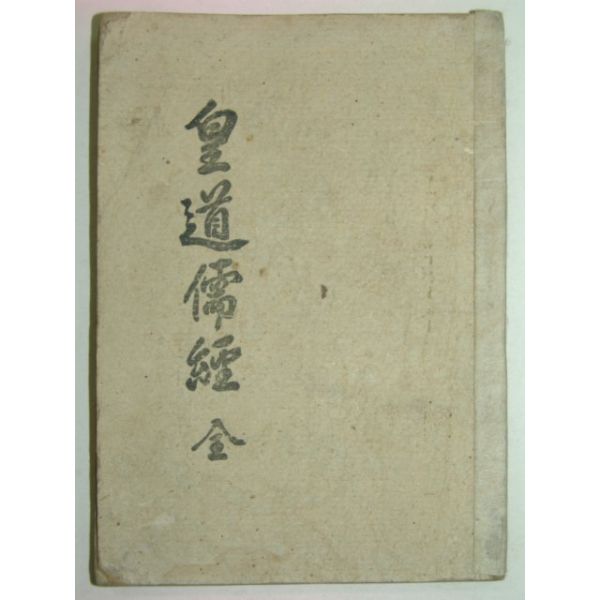 皇道儒經 全